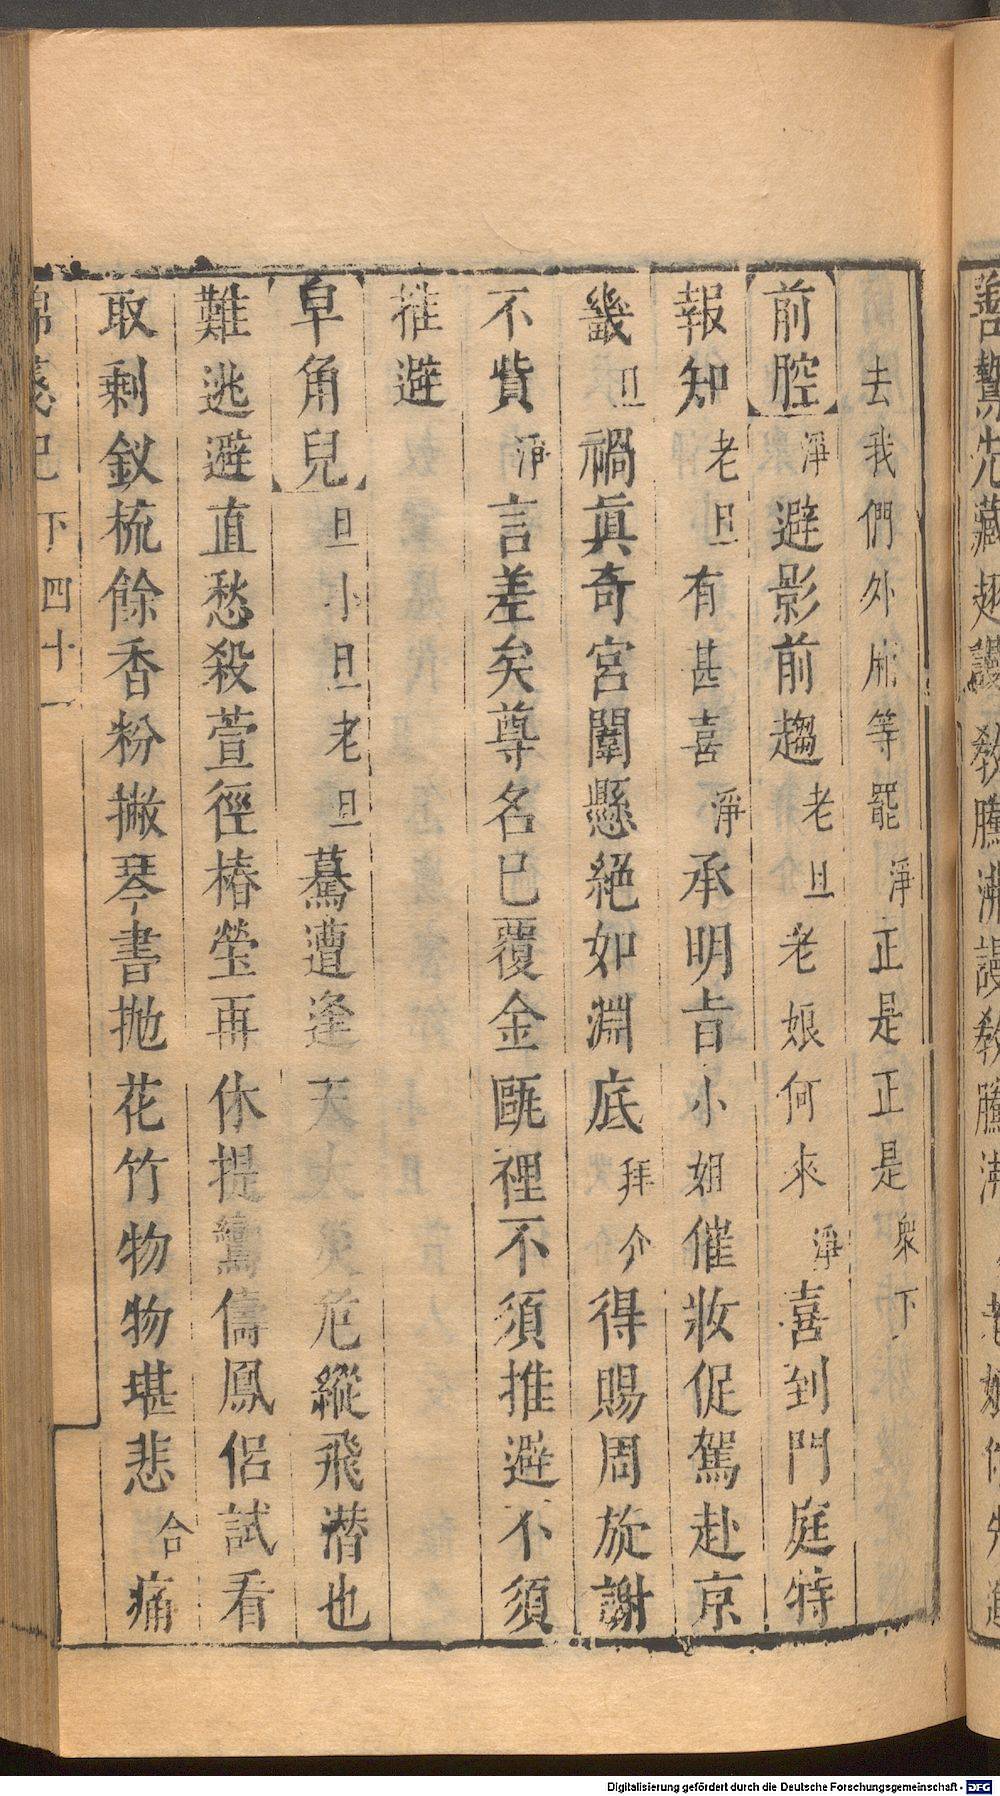 善驚先藏 敎騰 謾敎騰
去我們外廂等罷淨正是正是衆下
前腔淨避影前趨老旦老娘何來淨喜到門庭特
報知老旦有甚喜淨承明旨小姐催妝促駕赴京
畿旦禍眞奇宮闈懸絕如淵底拜介得賜周旋謝
不貲淨言差矣尊名已覆金甌裡不須推避不須
推避
皁角兒旦小旦老旦驀遭逢天大災危縱飛潛也
難逃避直愁殺萱徑椿瑩再休提鸞儔鳳侶試看
取剩釵梳餘香粉撇琴書拋花竹物物堪悲合痛
錦箋記 下 四十一
Digitalisierung gefördert durch die Deutsche Forschungsgemeinschaft - DFG